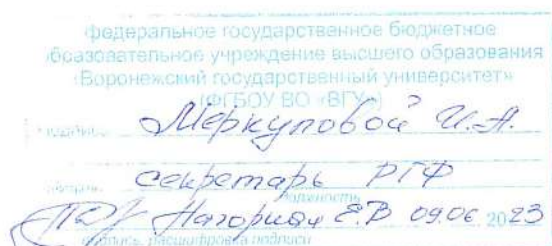 федеральное государственное бюджетное
образовательное учреждение высшего образования
«Воронежский государственный университет»
(ФГБОУ ВО «ВГУ»)
Подпись Меркуловой И.А.
секретарь РГФ
должность
Нагорная Е.В 09.06 2023
подпись, расшифровка подписи